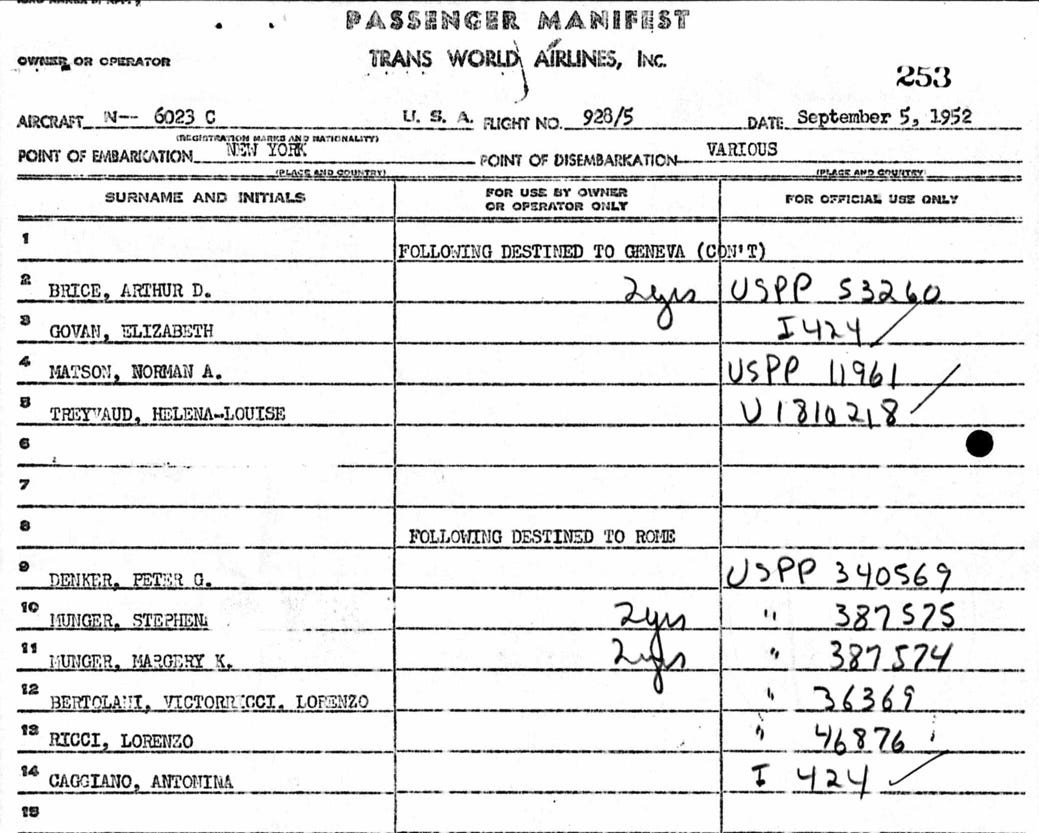 PASSENGER MANIFEST
OWNER OR OPERATOR TRANS WORLD AIRLINES, INC.
253
AIRCRAFT N-- 6023 C U. S. A. FLIGHT NO. 928/5 DATE September 5, 1952
(REGISTRATION MARKS AND NATIONALITY)
POINT OF EMBARKATION NEW YORK POINT OF DISEMBARKATION VARIOUS
(PLACE AND COUNTRY) (PLACE AND COUNTRY)
SURNAME AND INITIALS FOR USE BY OWNER OR OPERATOR ONLY FOR OFFICIAL USE ONLY
1 FOLLOWING DESTINED TO GENEVA (CON'T)
2 BRICE, ARTHUR D. 2yrs USPP 53260
3 GOVAN, ELIZABETH I 424
4 MATSON, NORMAN A. USPP 11961
5 TREYVAUD, HELENA-LOUISE U 1810218
6
7
8 FOLLOWING DESTINED TO ROME
9 DENKER, PETER G. USPP 340569
10 MUNGER, STEPHEN 2yrs " 387575
11 MUNGER, MARGERY K. 2yrs " 387574
12 BERTOLANI, VICTORRICCI, LORENZO " 36369
13 RICCI, LORENZO " 46876
14 CAGGIANO, ANTONINA I 424
15